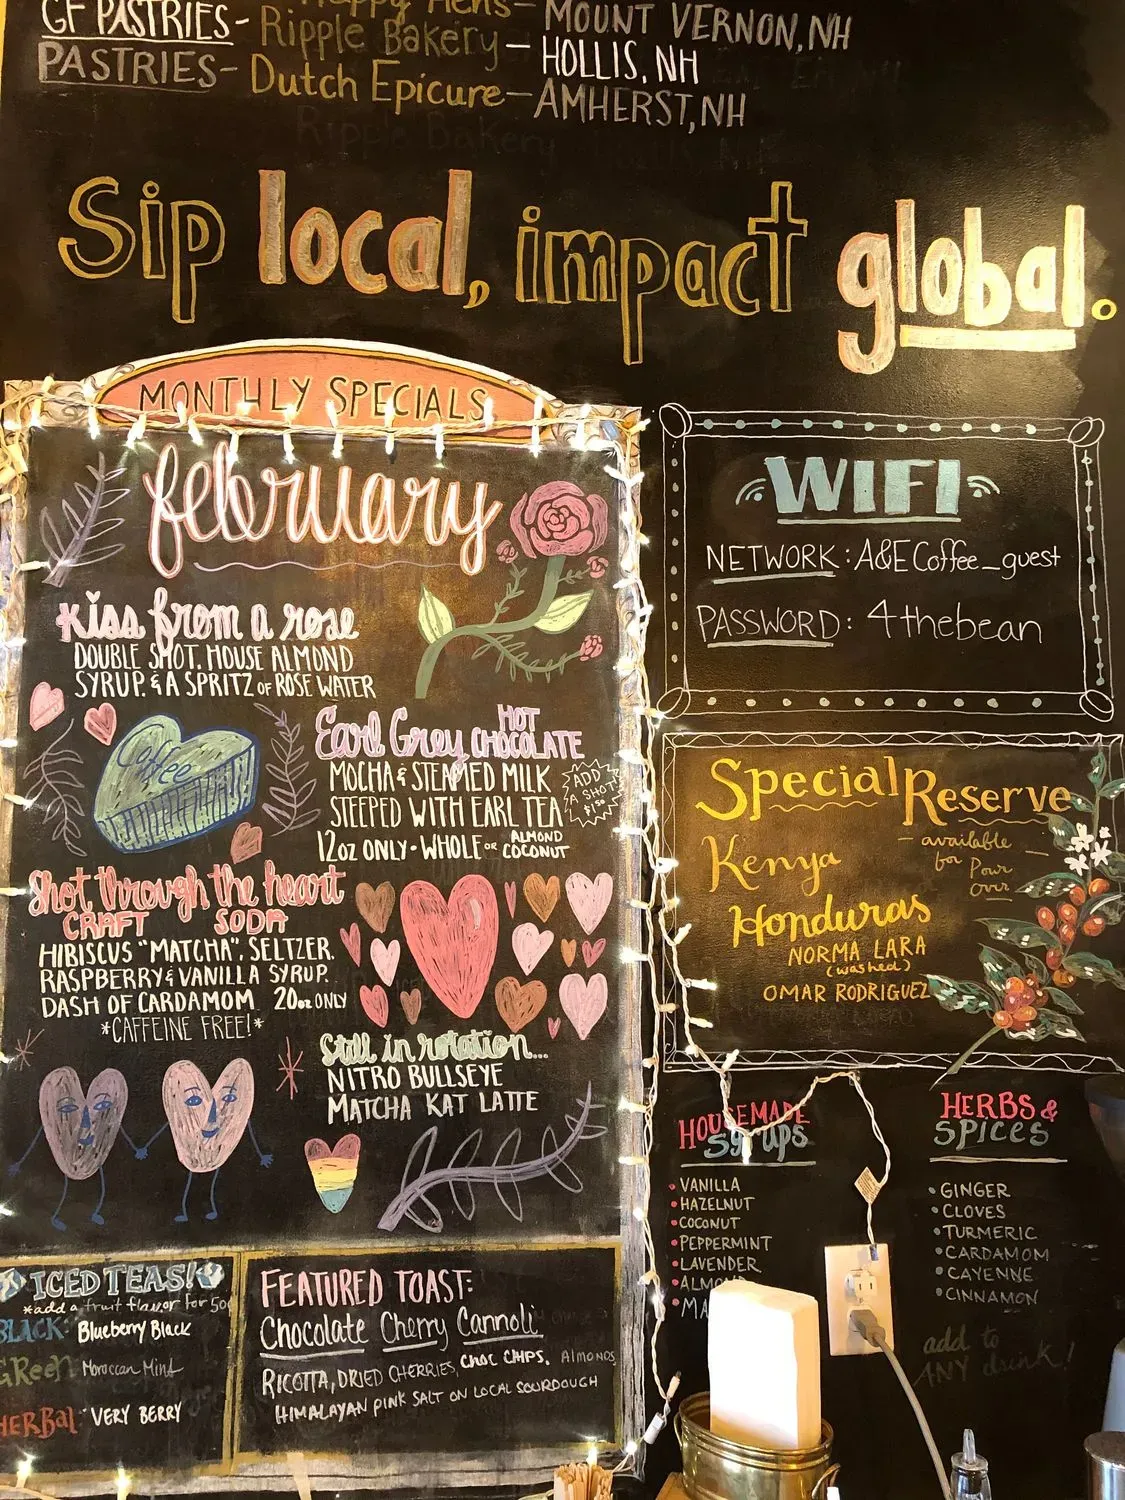 Happy Hens - MOUNT VERNON, NH
GF PASTRIES - Ripple Bakery - HOLLIS, NH
PASTRIES - Dutch Epicure - AMHERST, NH
Ripple Bakery
Sip local, impact global.
MONTHLY SPECIALS
february
kiss from a rose
DOUBLE SHOT. HOUSE ALMOND
SYRUP. & A SPRITZ OF ROSE WATER
coffee
Earl Grey HOT CHOCOLATE
MOCHA & STEAMED MILK
STEEPED WITH EARL TEA
ADD
A SHOT
$1.50
12oz ONLY • WHOLE OR ALMOND COCONUT
Shot through the heart
CRAFT SODA
HIBISCUS "MATCHA". SELTZER.
RASPBERRY & VANILLA SYRUP.
DASH OF CARDAMOM 20oz ONLY
*CAFFEINE FREE!*
Still in rotation...
NITRO BULLSEYE
MATCHA KAT LATTE
ICED TEAS!
*add a fruit flavor for 50
BLACK: Blueberry Black
GReen Moroccan Mint
HERBal: VERY BERRY
FEATURED TOAST:
Chocolate Cherry Cannoli
RICOTTA, DRIED CHERRIES, CHOC CHIPS. Almonds
HIMALAYAN PINK SALT ON LOCAL SOURDOUGH
WIFI
NETWORK: A&ECoffee_guest
PASSWORD: 4thebean
Special Reserve
- available for Pour over -
Kenya
Honduras
NORMA LARA
(washed)
OMAR RODRIGUEZ
HOUSEMADE
SYRUPS
• VANILLA
• HAZELNUT
• COCONUT
• PEPPERMINT
• LAVENDER
HERBS &
SPICES
• GINGER
• CLOVES
• TURMERIC
• CARDAMOM
• CAYENNE
• CINNAMON
add to
ANY drink!